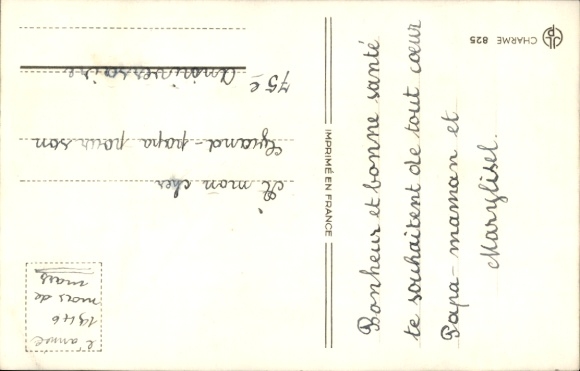 Bonheur et bonne santé
te souhaitent de tout cœur
Papa - maman et
Marylisel.
IMPRIMÉ EN FRANCE
A mon cher
Grand-papa pour son
75e Anniversaire
l'anné
1946
mois de
mars
CHARME 825